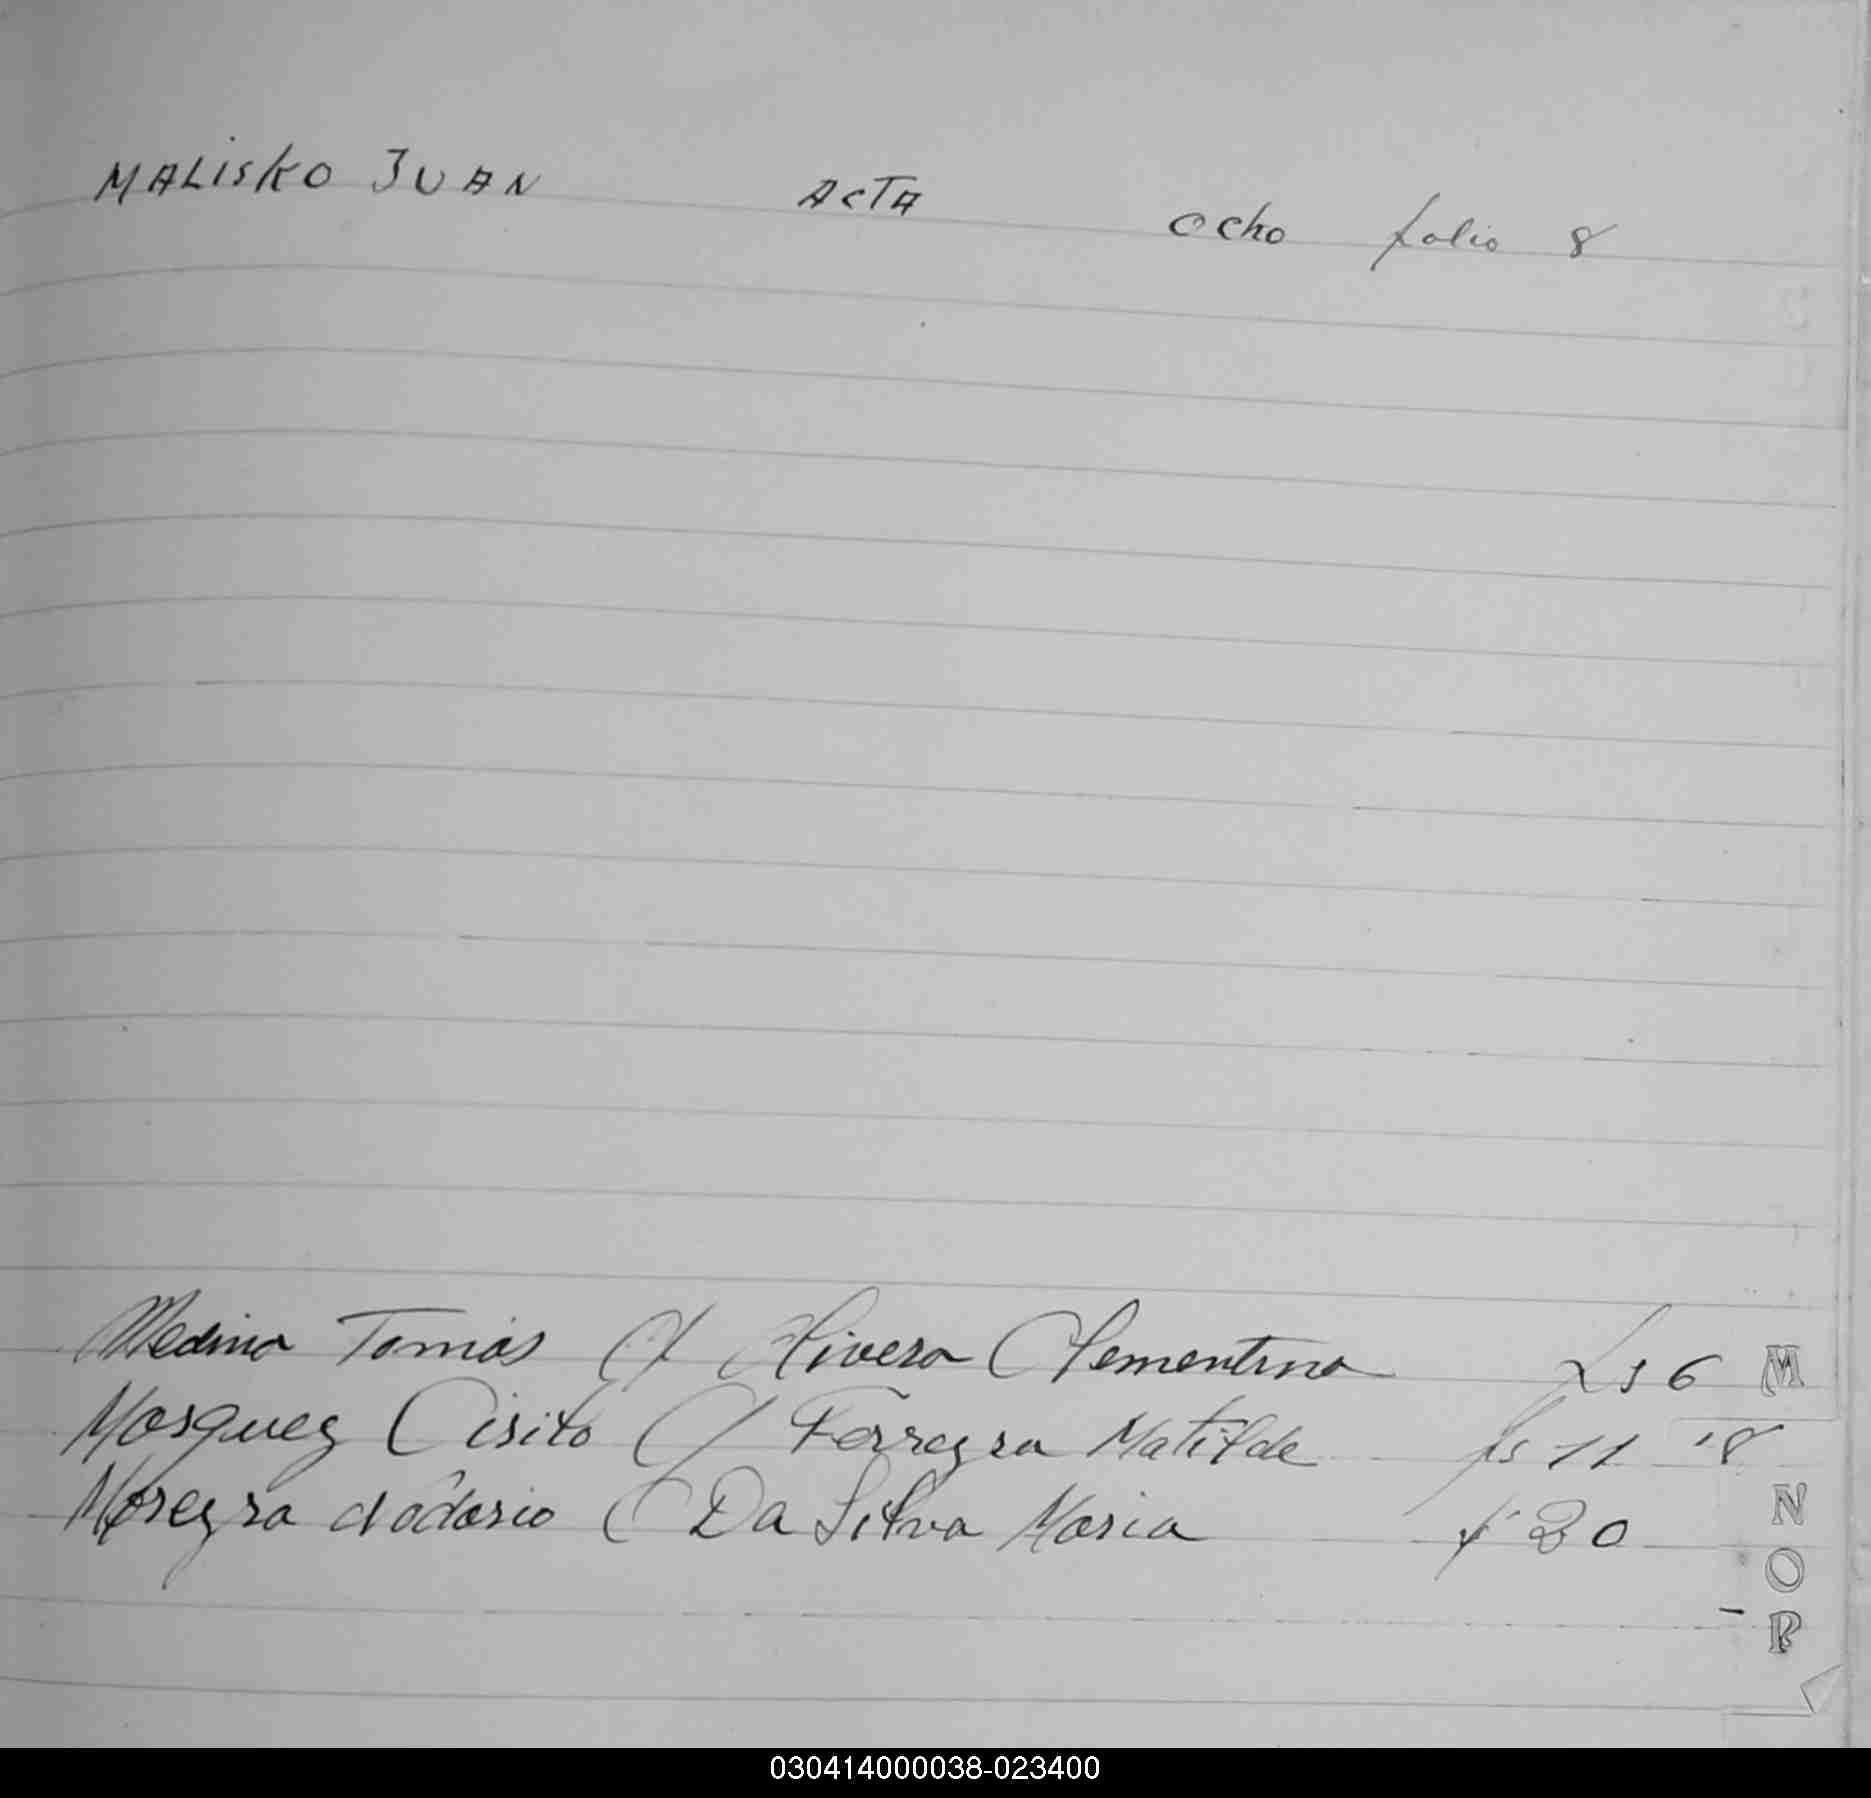 MALisKO JUAN ACTA ocho folio 8
Medina Tomás C/ Rivera Clementina fs 6 M
Mosquez Cisito C/ Ferreyra Matilde fs 11 8
Moreyra C Da Silva Maria f 20 N
O
P
030414000038-023400